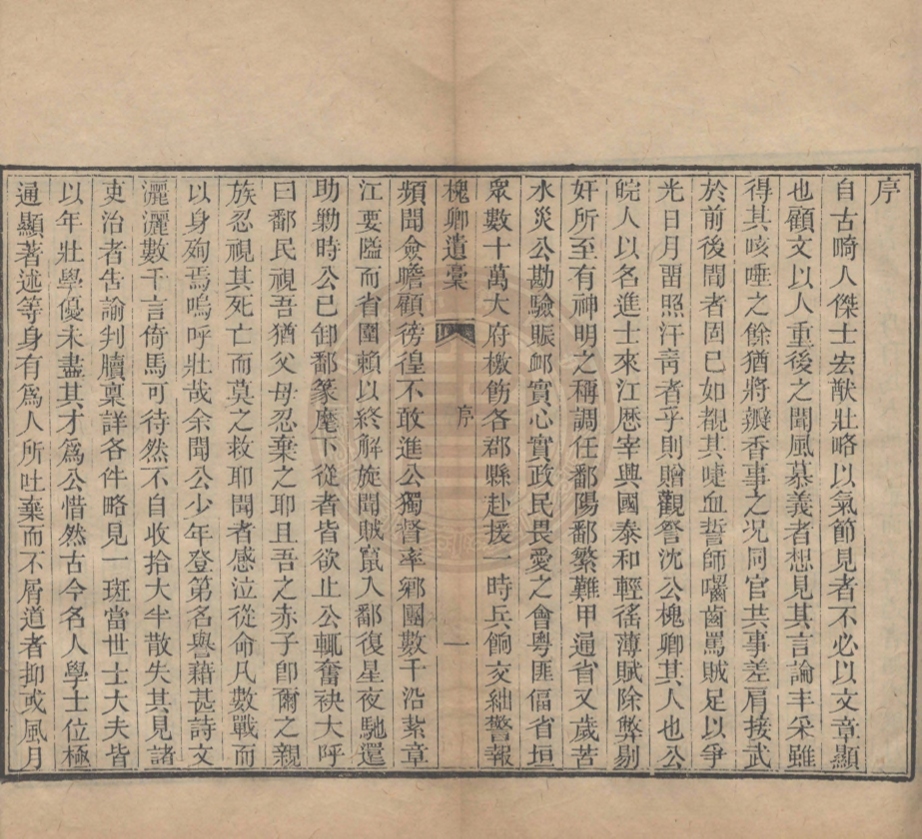 序
自古畸人傑士宏猷壯略以氣節見者不必以文章顯
也顧文以人重後之聞風慕義者想見其言論丰采雖
得其咳唾之餘猶將瓣香事之况同官共事差肩接武
於前後間者固已如覩其啑血誓師嚙齒罵賊足以爭
光日月畱照汗靑者乎則贈觀詧沈公槐卿其人也公
皖人以名進士來江歷宰興國泰和輕徭薄賦除弊剔
奸所至有神明之稱調任鄱陽鄱繁難甲通省又歲苦
水災公勘驗賑䘏實心實政民畏愛之會粵匪偪省垣
眾數十萬大府檄飭各郡縣赴援一時兵餉交絀警報
槐卿遺稾
序
一
頻聞僉瞻顧徬徨不敢進公獨督率鄉團數千沿紮章
江要隘而省圍賴以終解旋聞賊竄入鄱復星夜馳還
助勦時公已卸鄱篆麾下從者皆欲止公輒奮袂大呼
曰鄱民視吾猶父母忍棄之耶且吾之赤子卽爾之親
族忍視其死亡而莫之救耶聞者感泣從命凡數戰而
以身殉焉嗚呼壯哉余聞公少年登第名譽藉甚詩文
灑灑數千言倚馬可待然不自收拾大半散失其見諸
吏治者告諭判牘稟詳各件略見一斑當世士大夫皆
以年壯學優未盡其才爲公惜然古今名人學士位極
通顯著述等身有爲人所吐棄而不屑道者抑或風月